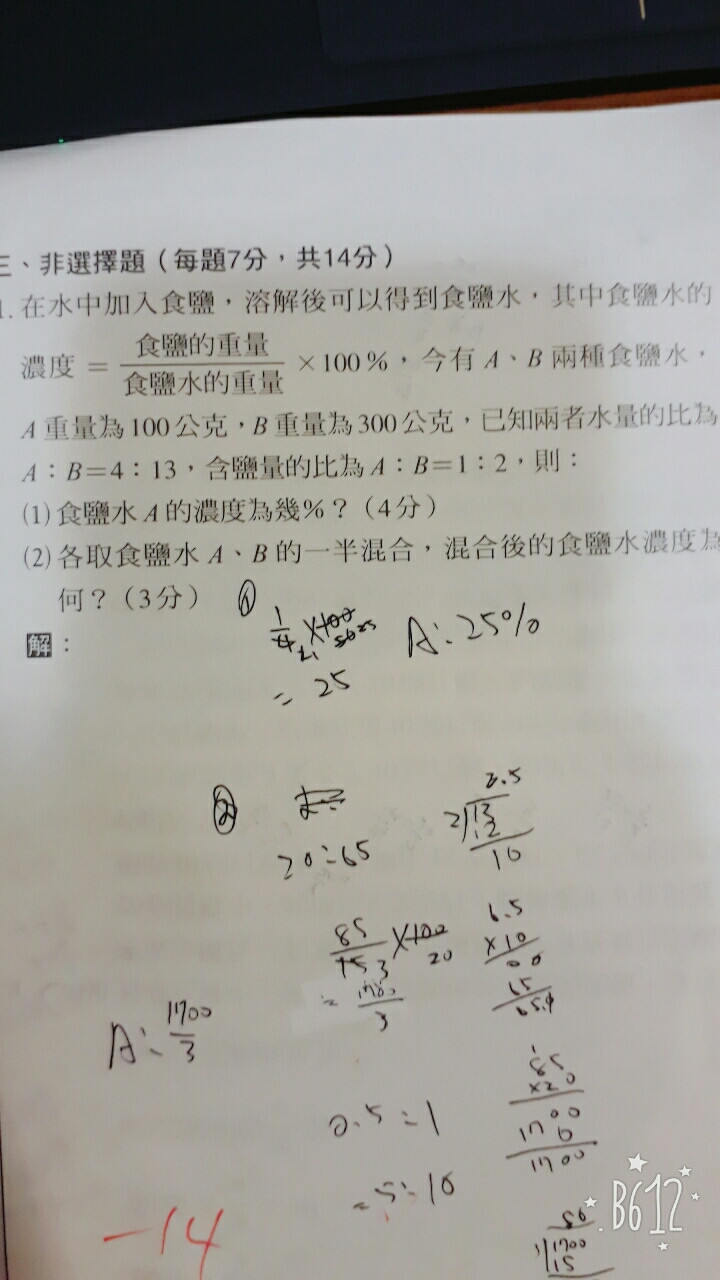 三、非選擇題（每題7分，共14分）
1. 在水中加入食鹽，溶解後可以得到食鹽水，其中食鹽水的
濃度 = 食鹽的重量/食鹽水的重量 ×100%，今有 A、B 兩種食鹽水，
A 重量為100公克，B 重量為300公克，已知兩者水量的比為
A：B=4：13，含鹽量的比為 A：B=1：2，則：
(1) 食鹽水 A 的濃度為幾%？（4分）
(2) 各取食鹽水 A、B 的一半混合，混合後的食鹽水濃度為
何？（3分） ①
解：
1/4 ×100
= 25
A: 25%
②
20:65
85/153 ×100
20
= 1700/3
A: 1700/3
0.5:1
=5:10
6.5
×10
00
65
85
×20
00
170
1700
1700
15
-14
B612